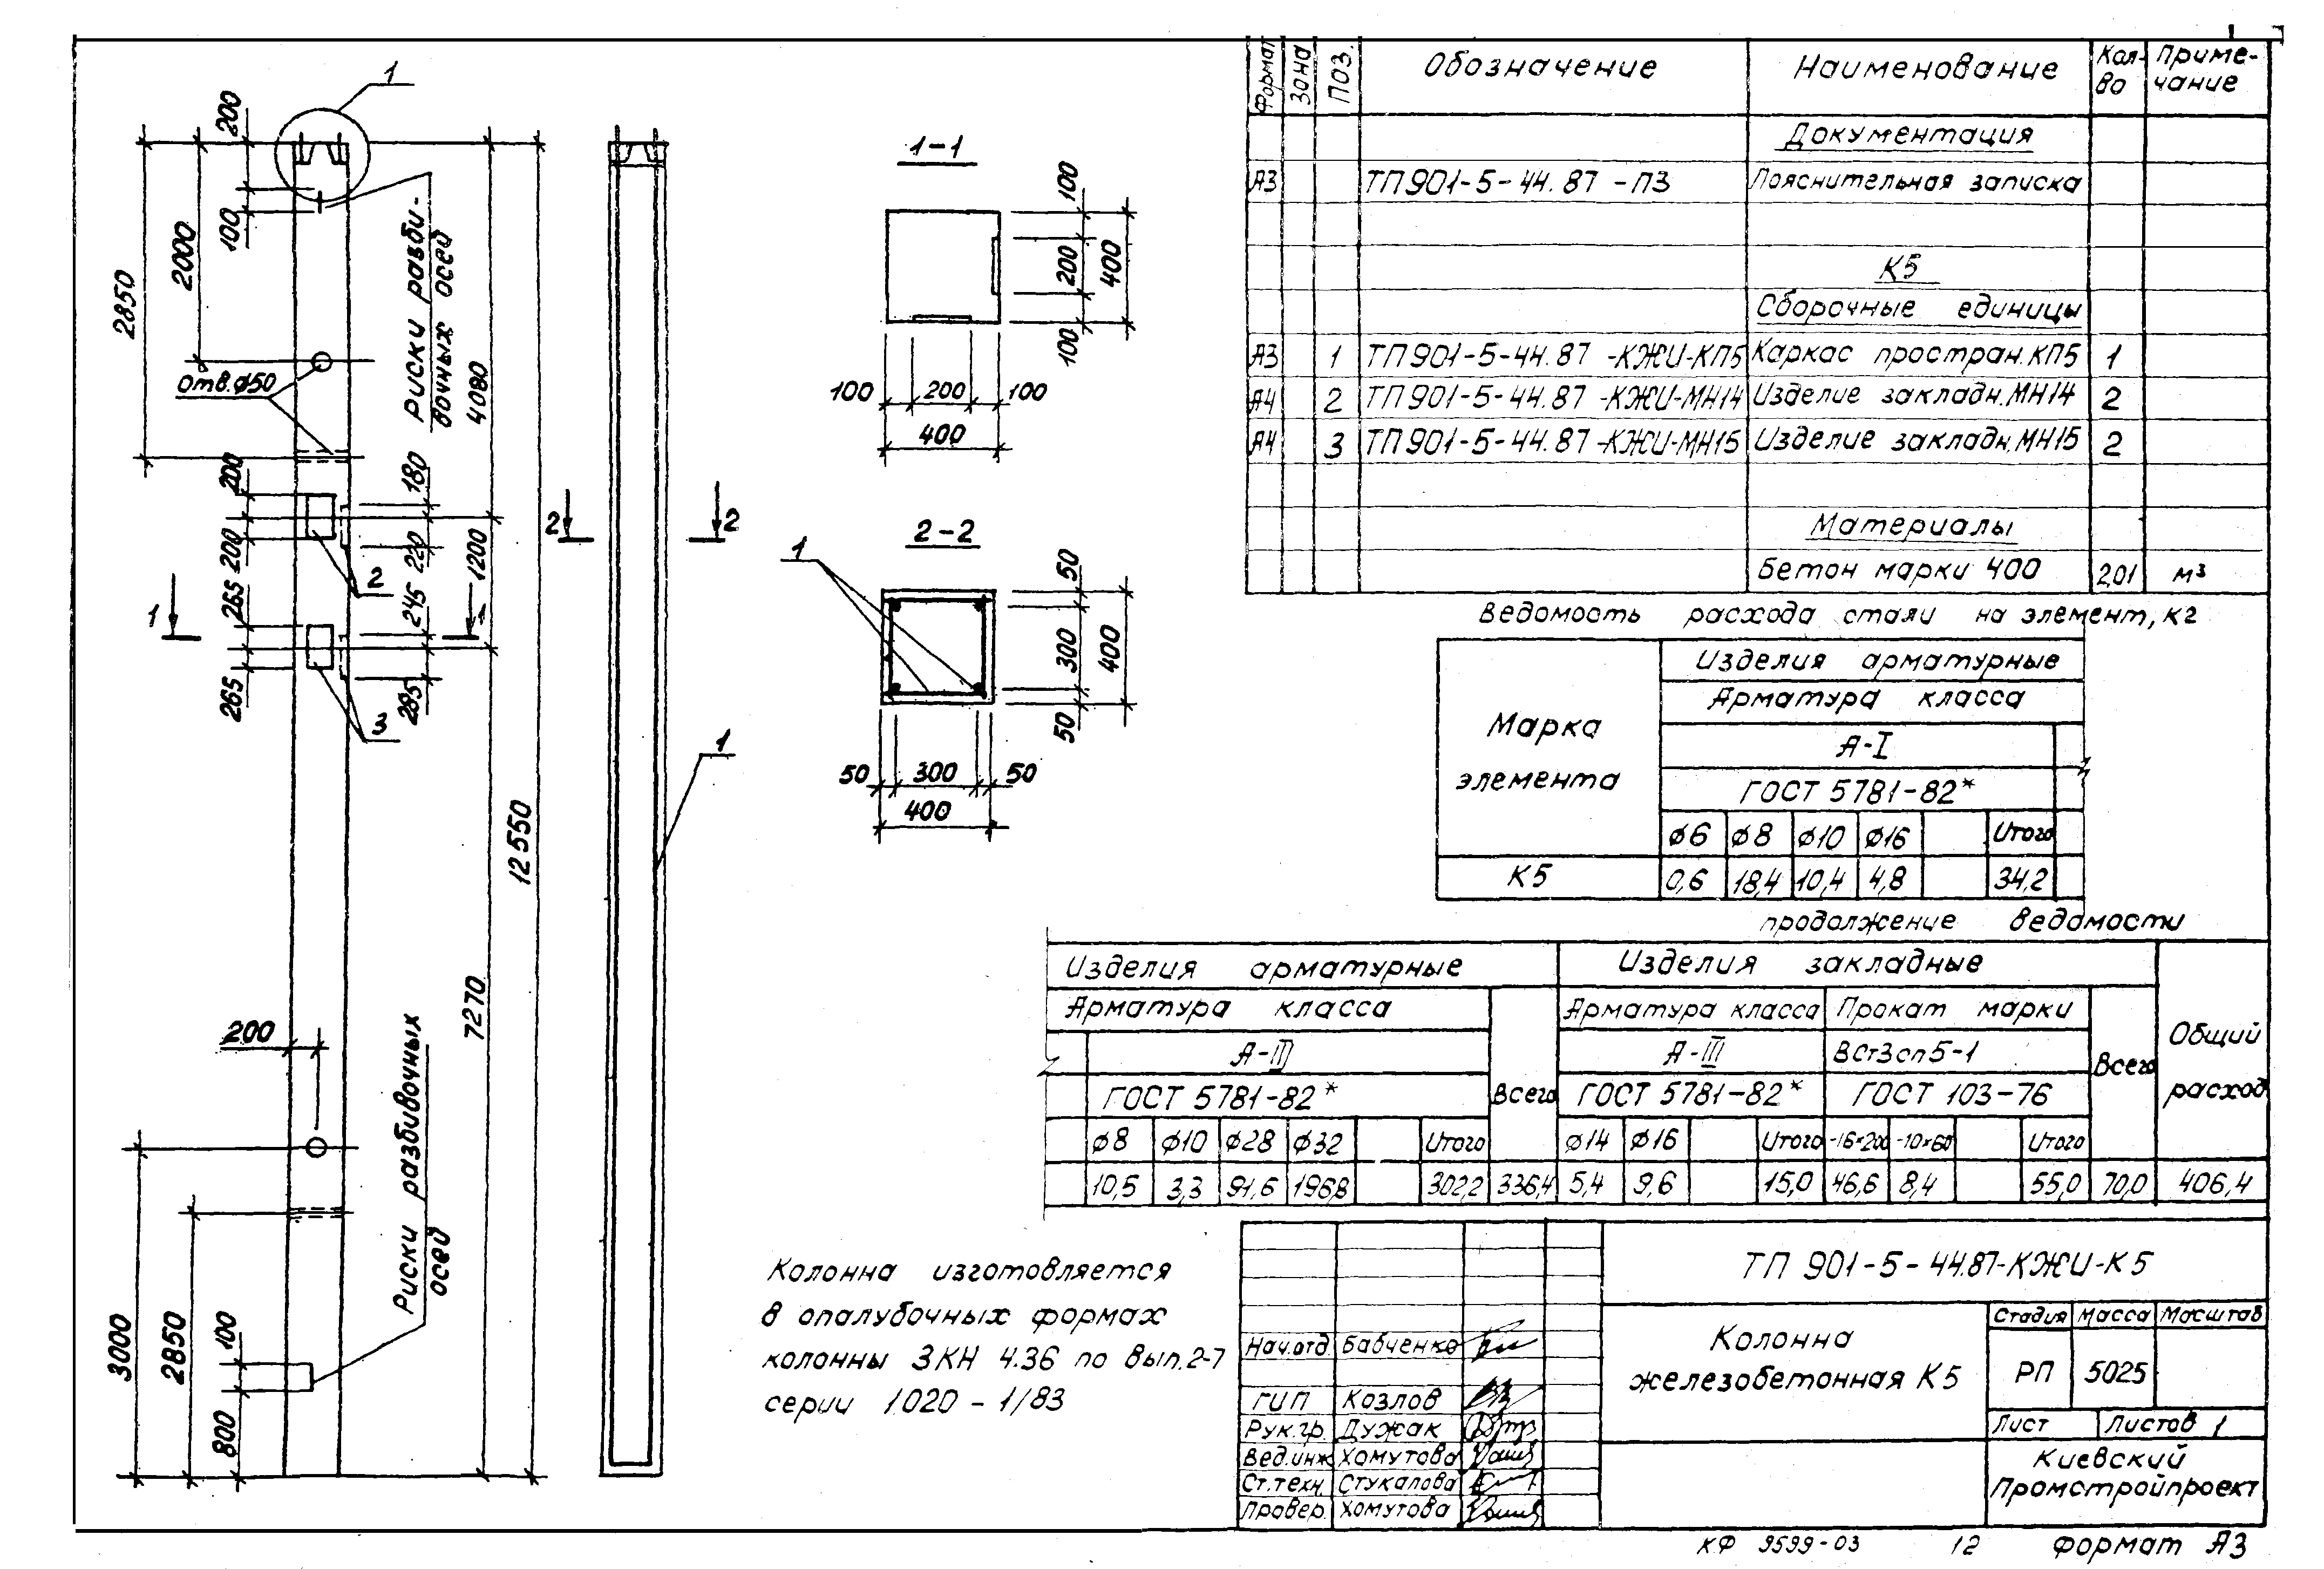 1
200
100
2000
2850
Риски разби-
вочных осей
4080
отв.ø50
200
180
200
220
2
1200
265
245
1
1
265
285
3
12550
7270
200
Риски разбивочных
осей
3000
2850
100
800
2
2
1
1-1
100
200
400
100
100 200 100
400
2-2
1
50
300
400
50
50 300 50
400
Колонна изготовляется
в опалубочных формах
колонны 3КН 4.36 по вып.2-7
серии 1.020-1/83
Формат Зона Поз. Обозначение Наименование Кол-во Приме-чание
Документация
А3 ТП901-5-44.87-ПЗ Пояснительная записка
К5
Сборочные единицы
А3 1 ТП901-5-44.87-КЖИ-КП5 Каркас простран.КП5 1
А4 2 ТП901-5-44.87-КЖИ-МН14 Изделие закладн.МН14 2
А4 3 ТП901-5-44.87-КЖИ-МН15 Изделие закладн.МН15 2
Материалы
Бетон марки 400 2,01 м³
Ведомость расхода стали на элемент, кг
Марка
элемента
Изделия арматурные
Арматура класса
А-I
ГОСТ 5781-82*
ø6 ø8 ø10 ø16 Итого
К5 0,6 18,4 10,4 4,8 34,2
продолжение ведомости
Изделия арматурные Изделия закладные
Арматура класса Всего Арматура класса Прокат марки Всего Общий расход
А-III А-III ВСт3сп5-1
ГОСТ 5781-82* ГОСТ 5781-82* ГОСТ 103-76
ø8 ø10 ø28 ø32 Итого ø14 ø16 Итого -16×200 -10×60 Итого
10,5 3,3 91,6 196,8 302,2 336,4 5,4 9,6 15,0 46,6 8,4 55,0 70,0 406,4
ТП 901-5-44.87-КЖИ-К5
Нач.отд Бабченко
ГИП Козлов
Рук.гр. Дужак
Вед.инж Хомутова
Ст.техн. Стукалова
Провер. Хомутова
Колонна
железобетонная К5
Стадия Масса Масштаб
РП 5025
Лист Листов 1
Киевский
Промстройпроект
КФ 9599-03 12 Формат А3